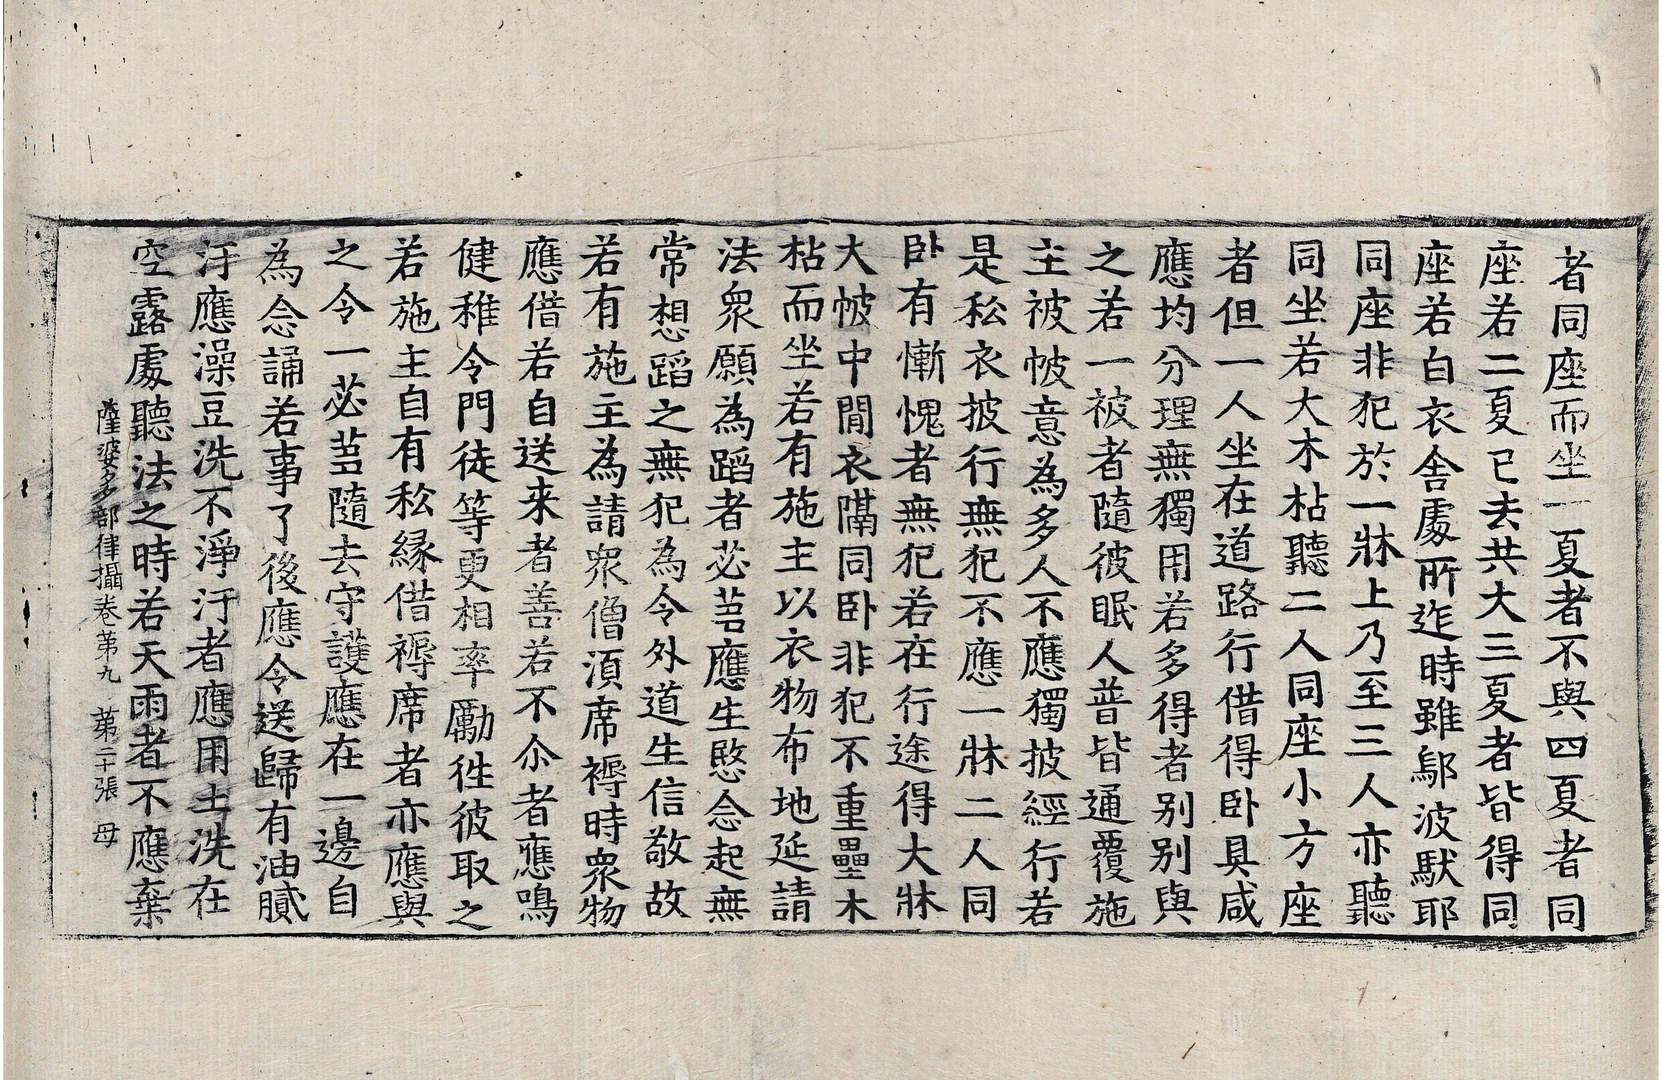 者同座而坐一夏者不與四夏者同
座若二夏已去共大三夏者皆得同
座若白衣舍處所迮時雖鄔波馱耶
同座非犯於一牀上乃至三人亦聽
同坐若大木枯聽二人同座小方座
者但一人坐在道路行借得卧具咸
應均分理無獨用若多得者别别與
之若一被者隨彼眠人普皆通覆施
主被帔意為多人不應獨披經行若
是私衣披行無犯不應一牀二人同
卧有慚愧者無犯若在行途得大牀
大帔中間衣隔同卧非犯不重壘木
枯而坐若有施主以衣物布地延請
法衆願為蹈者必芻應生愍念起無
常想蹈之無犯為令外道生信敬故
若有施主為請衆僧湏席褥時衆物
應借若自送来者善若不尒者應鳴
健稚令門徒等更相率勵徃彼取之
若施主自有私緣借褥席者亦應與
之令一苾芻隨去守護應在一邊自
為念誦若事了後應令送歸有油膩
汙應澡豆洗不淨汙者應用土洗在
空露處聽法之時若天雨者不應棄
薩婆多部律攝卷第九 第二十張 母